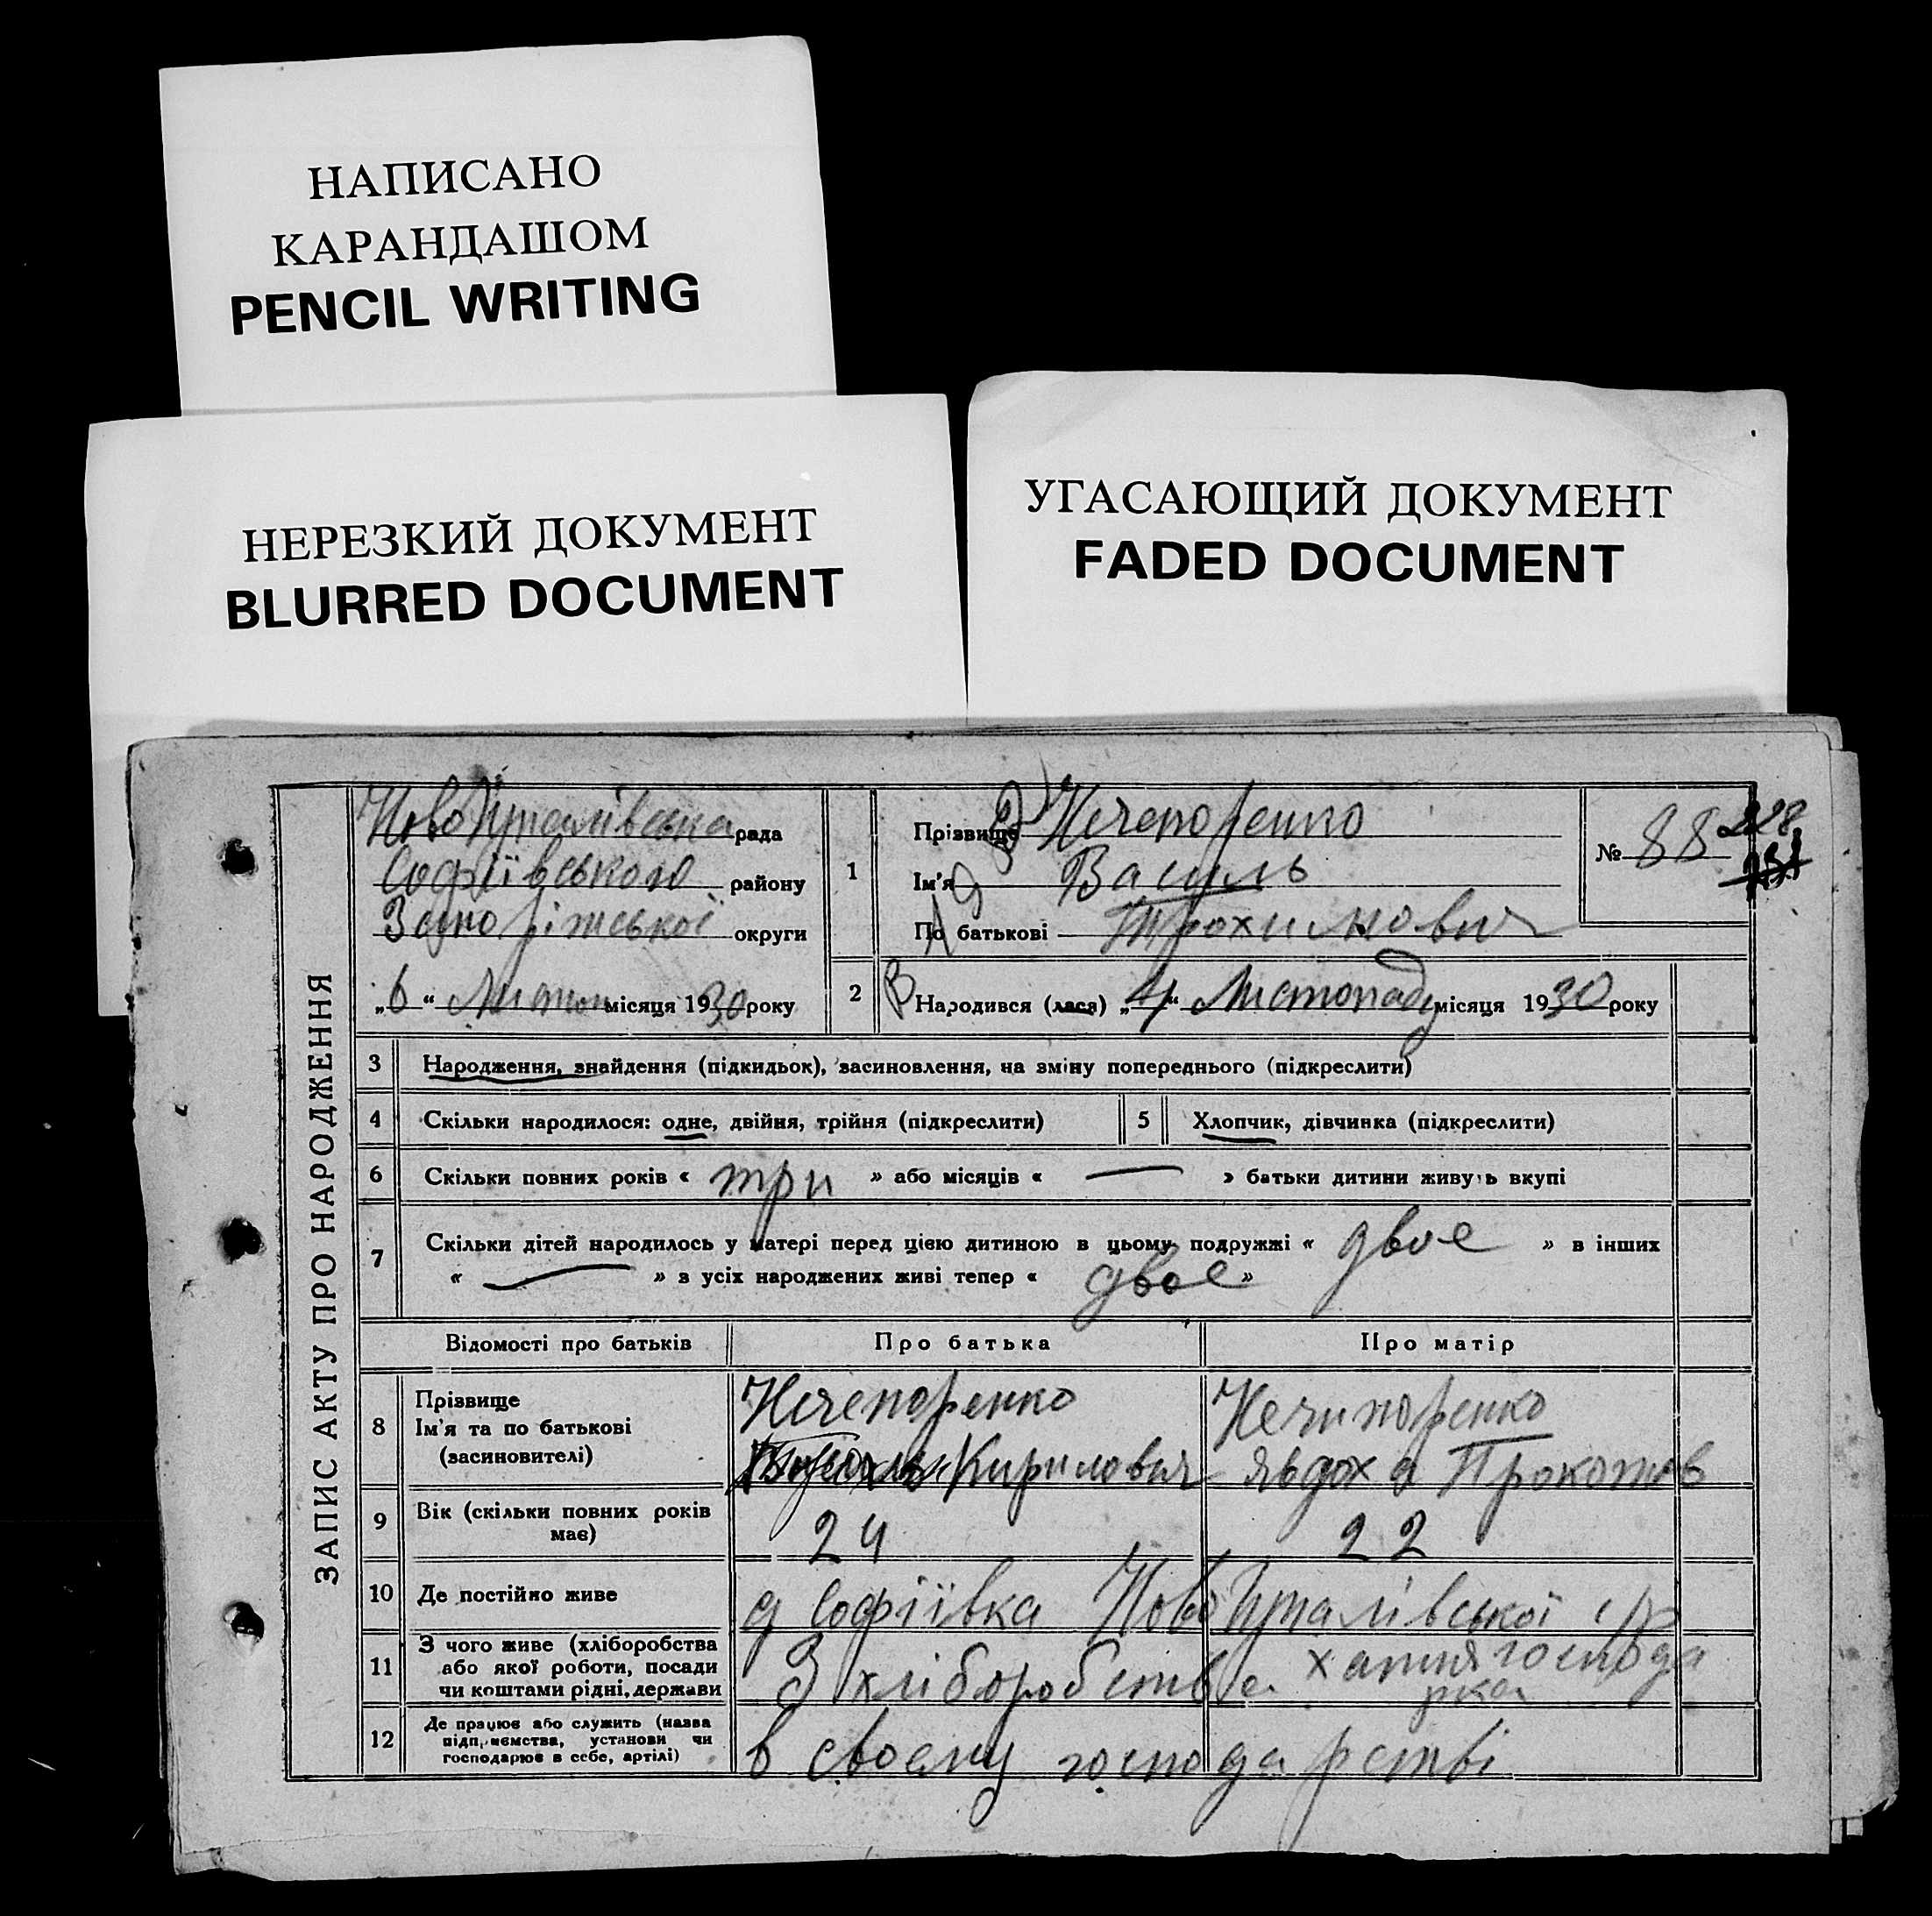 НАПИСАНО
КАРАНДАШОМ
PENCIL WRITING
НЕРЕЗКИЙ ДОКУМЕНТ
BLURRED DOCUMENT
УГАСАЮЩИЙ ДОКУМЕНТ
FADED DOCUMENT
ЗАПИС АКТУ ПРО НАРОДЖЕННЯ
рада
Софіївського району
Запоріжської округи
„6“ Листоп місяця 1930 року
1
Прізвище Нечепоренко
Ім'я Василь
По батькові Трохимович
№ 88
228
2 Народився (лася) „4“ Листопаду місяця 1930 року
3 Народження, знайдення (підкидьок), засиновлення, на зміну попереднього (підкреслити)
4 Скільки народилося: одне, двійня, трійня (підкреслити)
5 Хлопчик, дівчинка (підкреслити)
6 Скільки повних років « три » або місяців « — » батьки дитини живуть вкупі
7 Скільки дітей народилось у матері перед цією дитиною в цьому подружжі « двое » в інших
« — » з усіх народжених живі тепер « двое »
Відомості про батьків Про батька Про матір
8 Прізвище
Ім'я та по батькові
(засиновителі)
Нечепоренко
Кирилович
Нечипоренко
Явдоха Прокопов
9 Вік (скільки повних років
має)
24 22
10 Де постійно живе
д Софіївка
11 З чого живе (хліборобства
або якої роботи, посади
чи коштами рідні, держави
З хліборобства
хатня господа
рка
12 Де працює або служить (назва
підприємства, установи чи
господарює в себе, артілі)
в своему господарстві